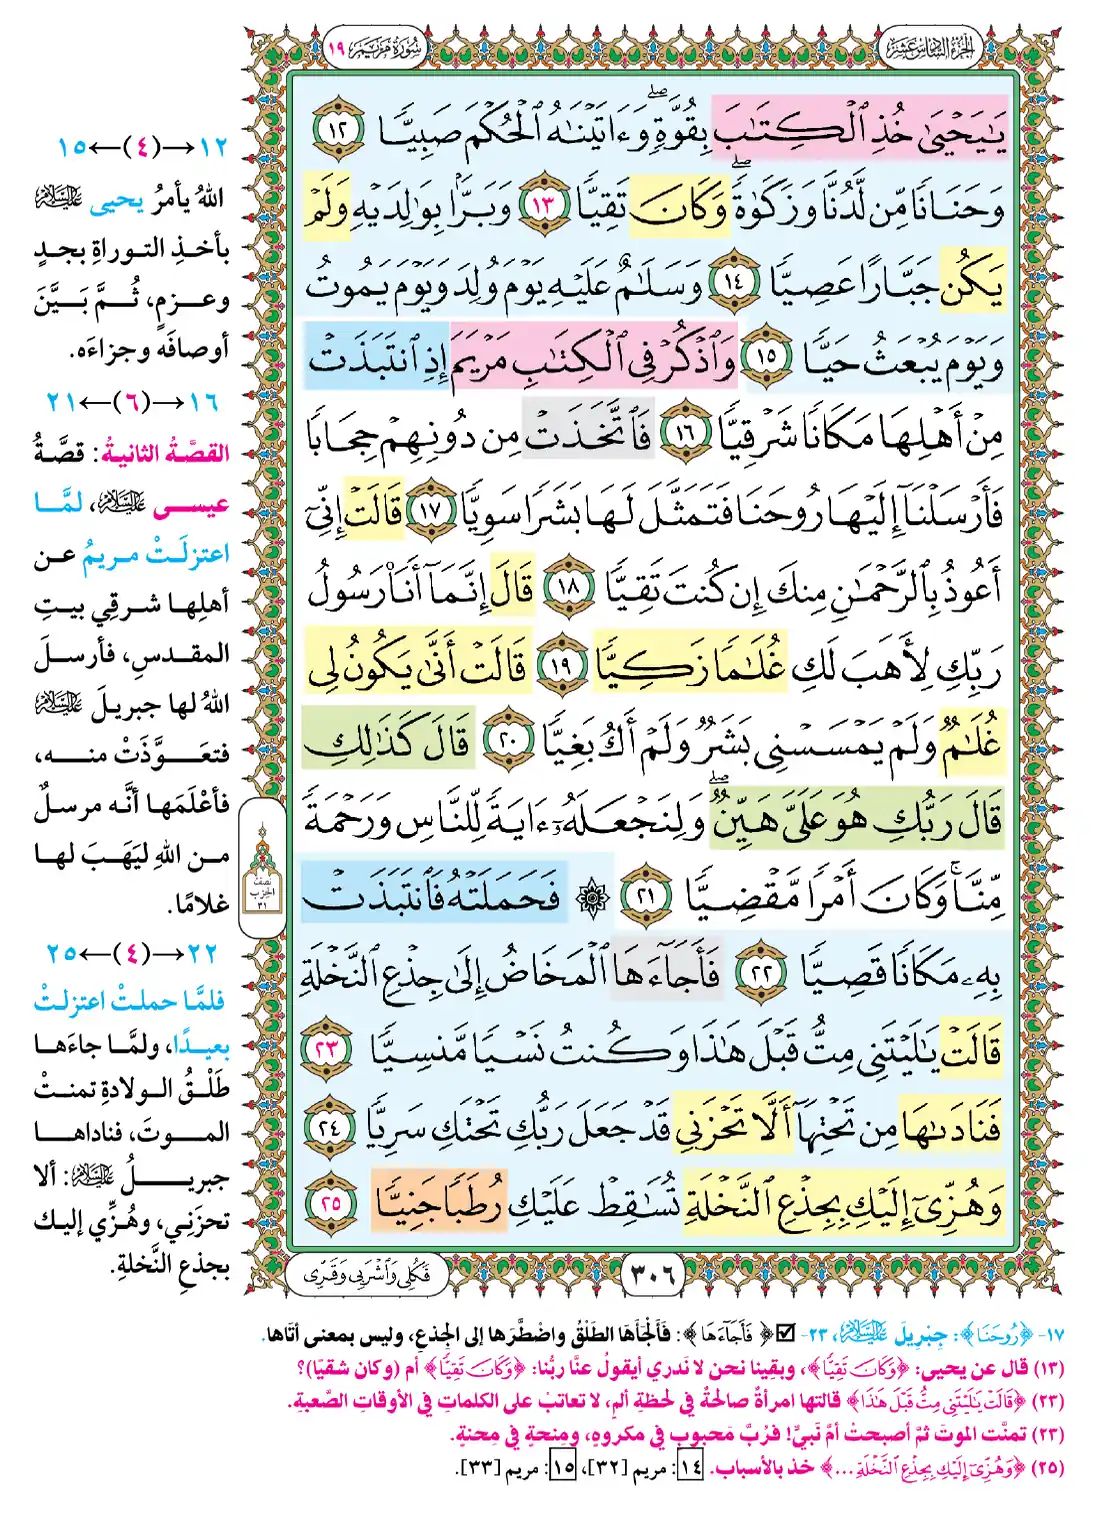 الجزء السادس عشر
سورة مريم ١٩
يَٰيَحْيَىٰ خُذِ ٱلْكِتَٰبَ بِقُوَّةٍۖ وَءَاتَيْنَٰهُ ٱلْحُكْمَ صَبِيًّا ١٢
وَحَنَانًا مِّن لَّدُنَّا وَزَكَوٰةًۖ وَكَانَ تَقِيًّا ١٣ وَبَرًّۢا بِوَٰلِدَيْهِ وَلَمْ
يَكُن جَبَّارًا عَصِيًّا ١٤ وَسَلَٰمٌ عَلَيْهِ يَوْمَ وُلِدَ وَيَوْمَ يَمُوتُ
وَيَوْمَ يُبْعَثُ حَيًّا ١٥ وَٱذْكُرْ فِي ٱلْكِتَٰبِ مَرْيَمَ إِذِ ٱنتَبَذَتْ
مِنْ أَهْلِهَا مَكَانًا شَرْقِيًّا ١٦ فَٱتَّخَذَتْ مِن دُونِهِمْ حِجَابًا
فَأَرْسَلْنَآ إِلَيْهَا رُوحَنَا فَتَمَثَّلَ لَهَا بَشَرًا سَوِيًّا ١٧ قَالَتْ إِنِّيٓ
أَعُوذُ بِٱلرَّحْمَٰنِ مِنكَ إِن كُنتَ تَقِيًّا ١٨ قَالَ إِنَّمَآ أَنَا۠ رَسُولُ
رَبِّكِ لِأَهَبَ لَكِ غُلَٰمًا زَكِيًّا ١٩ قَالَتْ أَنَّىٰ يَكُونُ لِي
غُلَٰمٌ وَلَمْ يَمْسَسْنِي بَشَرٌ وَلَمْ أَكُ بَغِيًّا ٢٠ قَالَ كَذَٰلِكِ
قَالَ رَبُّكِ هُوَ عَلَيَّ هَيِّنٌۖ وَلِنَجْعَلَهُۥٓ ءَايَةً لِّلنَّاسِ وَرَحْمَةً
مِّنَّاۚ وَكَانَ أَمْرًا مَّقْضِيًّا ٢١ ۞ فَحَمَلَتْهُ فَٱنتَبَذَتْ
بِهِۦ مَكَانًا قَصِيًّا ٢٢ فَأَجَآءَهَا ٱلْمَخَاضُ إِلَىٰ جِذْعِ ٱلنَّخْلَةِ
قَالَتْ يَٰلَيْتَنِي مِتُّ قَبْلَ هَٰذَا وَكُنتُ نَسْيًا مَّنسِيًّا ٢٣
فَنَادَىٰهَا مِن تَحْتِهَآ أَلَّا تَحْزَنِي قَدْ جَعَلَ رَبُّكِ تَحْتَكِ سَرِيًّا ٢٤
وَهُزِّيٓ إِلَيْكِ بِجِذْعِ ٱلنَّخْلَةِ تُسَٰقِطْ عَلَيْكِ رُطَبًا جَنِيًّا ٢٥
٣٠٦
فَكُلِي وَٱشْرَبِي وَقَرِّي
نصف
الحزب
٣١
١٢→(٤)←١٥
اللهُ يأمرُ يحيى عليه السلام
بأخذِ التوراةِ بجدٍ
وعزمٍ، ثُمَّ بَيَّنَ
أوصافَه وجزاءَه.
١٦→(٦)←٢١
القصَّةُ الثانيةُ: قصَّةُ
عيسى عليه السلام، لمَّا
اعتزلَتْ مريمُ عن
أهلِها شرقي بيتِ
المقدسِ، فأرسلَ
اللهُ لها جبريلَ عليه السلام
فتعَوَّذَتْ منه،
فأعْلَمَها أنَّه مرسلٌ
من اللهِ ليَهَبَ لها
غلامًا.
٢٢→(٤)←٢٥
فلمَّا حملتْ اعتزلتْ
بعيدًا، ولمَّا جاءَها
طَلْقُ الولادةِ تمنتْ
الموتَ، فناداها
جبريلُ عليه السلام: ألا
تحزَنِي، وهُزِّي إليك
بجذعِ النَّخلةِ.
١٧- ﴿رُوحَنَا﴾: جِبْرِيلَ عليه السلام، ٢٣- ☑ ﴿فَأَجَآءَهَا﴾: فَأَلْجَأَهَا الطَلْقُ واضْطَّرَها إلى الجِذعِ، وليس بمعنى أتَاها.
(١٣) قال عن يحيى: ﴿وَكَانَ تَقِيًّا﴾، وبقينا نحن لا نَدري أيقولُ عنَّا ربُّنا: ﴿وَكَانَ تَقِيًّا﴾ أم (وكان شقيًا)؟
(٢٣) ﴿قَالَتْ يَٰلَيْتَنِي مِتُّ قَبْلَ هَٰذَا﴾ قالتها امرأةٌ صالحةٌ في لحظةِ ألمٍ، لا تعاتبْ على الكلماتِ في الأوقاتِ الصَّعبةِ.
(٢٣) تمنَّت الموتَ ثمَّ أصبحتْ أمَّ نَبيٍّ! فرُبَّ مَحبوبٍ في مكروهٍ، ومِنحةٍ في مِحنةٍ.
(٢٥) ﴿وَهُزِّيٓ إِلَيْكِ بِجِذْعِ ٱلنَّخْلَةِ...﴾ خذ بالأسباب. ١٤: مريم [٣٢]، ١٥: مريم [٣٣].